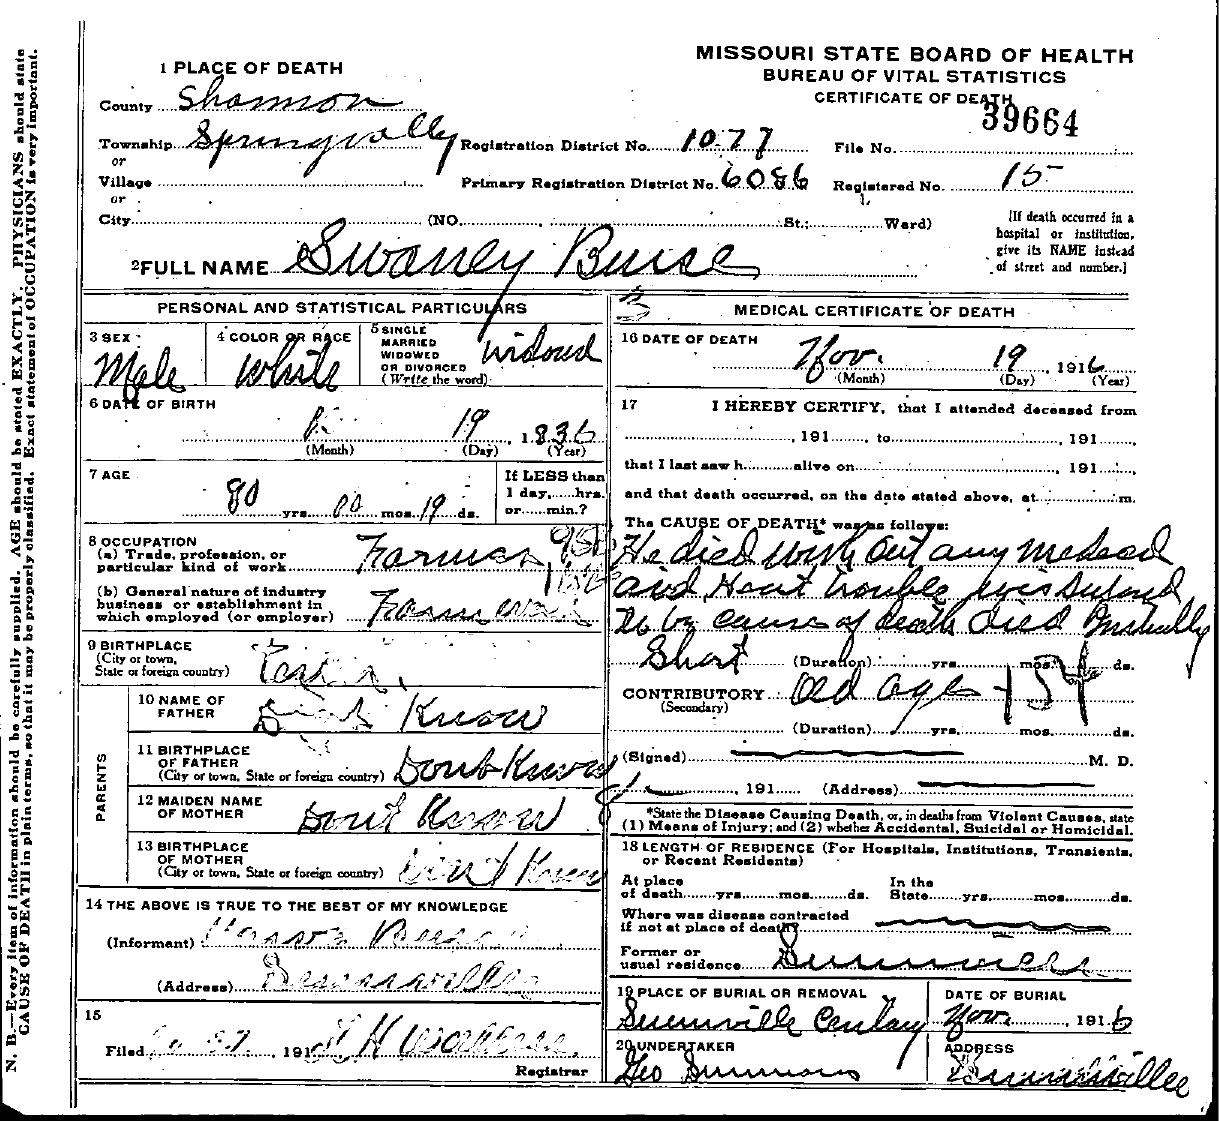 MISSOURI STATE BOARD OF HEALTH
BUREAU OF VITAL STATISTICS
CERTIFICATE OF DEATH
39664
1 PLACE OF DEATH
County Shannon
Township Springvally Registration District No. 1077 File No.
or
Village Primary Registration District No. 6086 Registered No. 15
or
City (NO. St.; Ward)
[If death occurred in a
hospital or institution,
give its NAME instead
of street and number.]
2 FULL NAME Swaney Buice
PERSONAL AND STATISTICAL PARTICULARS
3 SEX Male
4 COLOR OR RACE White
5 SINGLE
MARRIED
WIDOWED
OR DIVORCED
(Write the word) widowed
6 DATE OF BIRTH
19, 1836
(Month) (Day) (Year)
7 AGE
80 yrs. 00 mos. 19 ds.
If LESS than
1 day, hrs.
or min.?
8 OCCUPATION
(a) Trade, profession, or
particular kind of work Farmer
(b) General nature of industry
business or establishment in
which employed (or employer)
9 BIRTHPLACE
(City or town,
State or foreign country)
PARENTS
10 NAME OF
FATHER Dont Know
11 BIRTHPLACE
OF FATHER
(City or town, State or foreign country) Dont Know
12 MAIDEN NAME
OF MOTHER Dont Know
13 BIRTHPLACE
OF MOTHER
(City or town, State or foreign country) Dont Know
14 THE ABOVE IS TRUE TO THE BEST OF MY KNOWLEDGE
(Informant)
(Address) Summerville
15
Filed 191
Registrar
3
MEDICAL CERTIFICATE OF DEATH
16 DATE OF DEATH
Nov. 19, 1916
(Month) (Day) (Year)
17 I HEREBY CERTIFY, that I attended deceased from
, 191 , to , 191 ,
that I last saw h alive on , 191 ,
and that death occurred, on the date stated above, at m.
The CAUSE OF DEATH* was as follows:
He died with out any Medecal
aid Heart trouble
To be cause of death died
Short (Duration) yrs. mos. ds.
CONTRIBUTORY Old age 154
(Secondary)
(Duration) yrs. mos. ds.
(Signed) M. D.
, 191 (Address)
*State the Disease Causing Death, or, in deaths from Violent Causes, state
(1) Means of Injury; and (2) whether Accidental, Suicidal or Homicidal.
18 LENGTH OF RESIDENCE (For Hospitals, Institutions, Transients,
or Recent Residents)
At place In the
of death yrs. mos. ds. State yrs. mos. ds.
Where was disease contracted
if not at place of death?
Former or
usual residence
19 PLACE OF BURIAL OR REMOVAL DATE OF BURIAL
Nov. , 1916
20 UNDERTAKER ADDRESS
Geo Simmons
N. B.—Every item of information should be carefully supplied. AGE should be stated EXACTLY. PHYSICIANS should state
CAUSE OF DEATH in plain terms, so that it may be properly classified. Exact statement of OCCUPATION is very important.